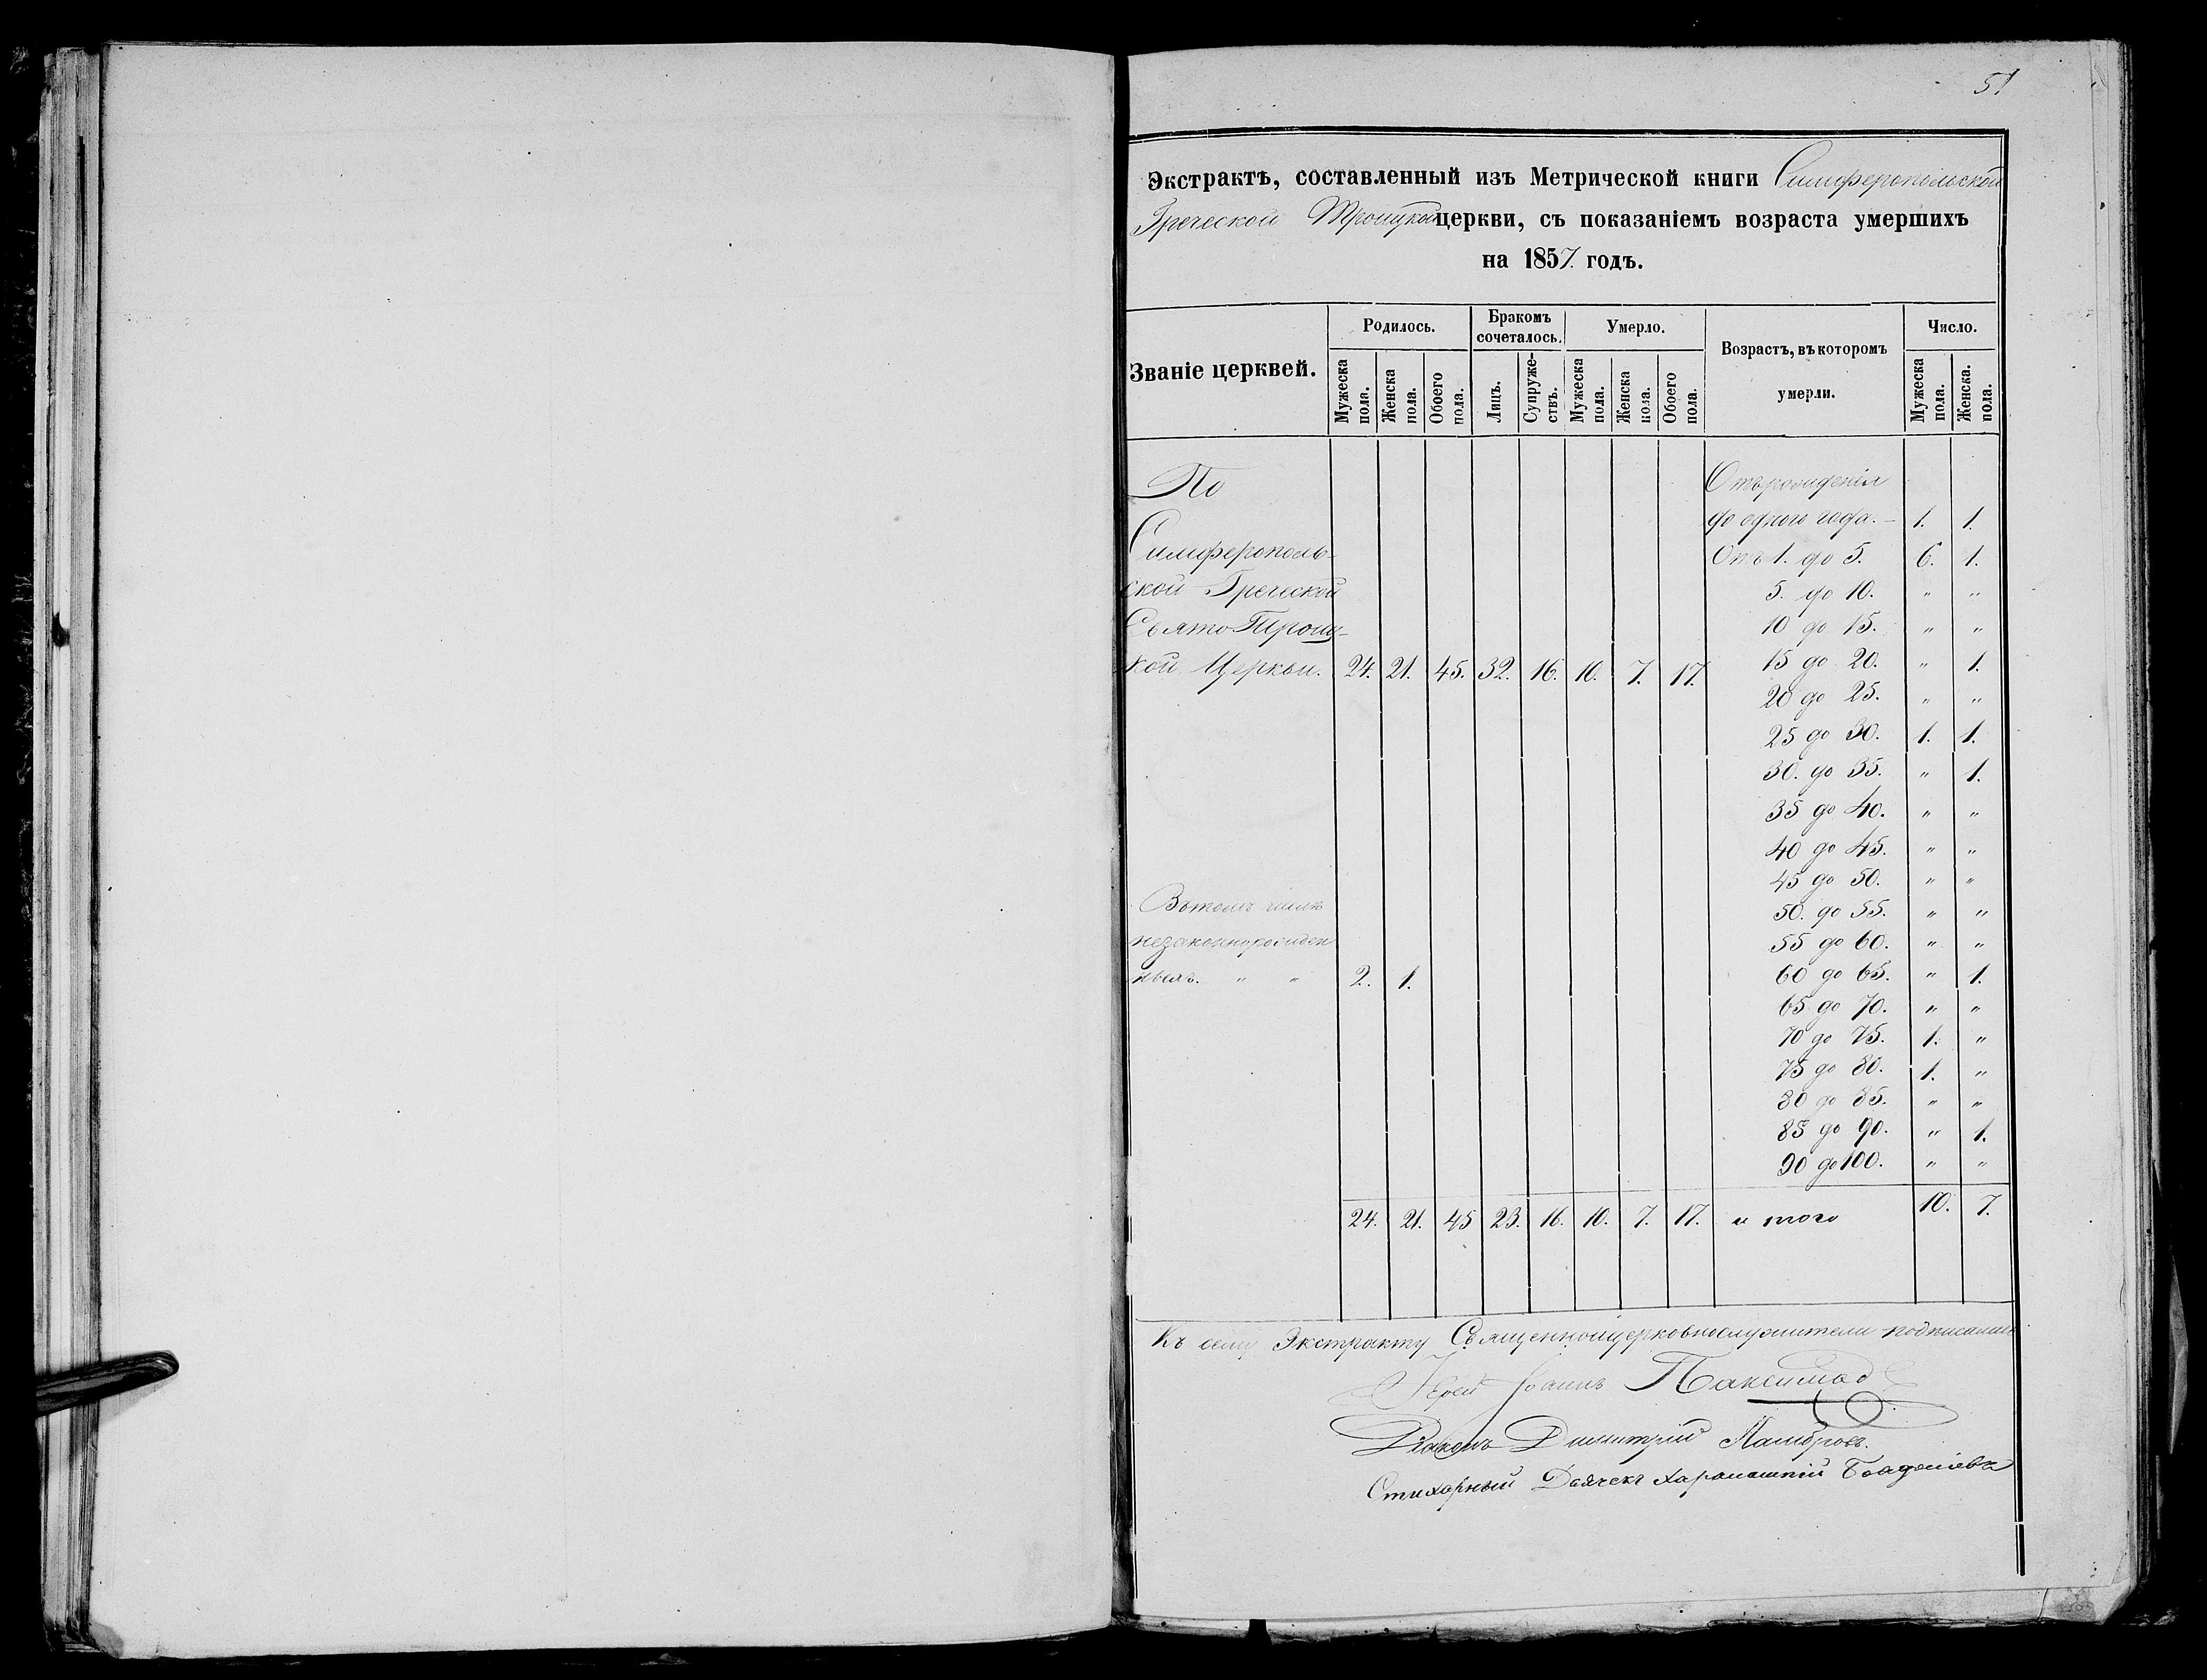 51
Экстрактъ, составленный изъ Метрической книги Симферопольской
Греческой Троицкой церкви, съ показаніемъ возраста умершихъ
на 1857. годъ.
Званіе церквей.
Родилось.
Бракомъ сочеталось.
Умерло.
Возрастъ, въ которомъ умерли.
Число.
Мужеска пола.
Женска пола.
Обоего пола.
Лицъ.
Супружествъ.
Мужеска пола.
Женска пола.
Обоего пола.
Мужеска пола.
Женска. пола.
По
Симферополь-
ской Греческой
Свято Троиц-
кой Церкви. 24. 21. 45. 32. 16. 10. 7. 17.
Въ томъ числѣ
незаконнорожден
ныхъ. " " 2. 1.
Отъ рожденія
до одного года. - 1. 1.
Отъ 1. до 5. 6. 1.
5. до 10. " "
10 до 15. " "
15 до 20. " 1.
20 до 25. " "
25 до 30. 1. 1.
30. до 35. " 1.
35 до 40. " "
40 до 45. " "
45 до 50. " "
50. до 55. " "
55 до 60. " "
60 до 65. " 1.
65 до 70. " "
70 до 75. 1. "
75 до 80. 1. "
80 до 85. " "
85 до 90. " 1.
90 до 100. " "
24. 21. 45 23. 16. 10. 7. 17. и того 10. 7.
Къ сему Экстракту Священноцерковнослужители подписались
Іерей Іоаннъ Паксимад
Діаконъ Димитрій
Стихарный Дьячекъ